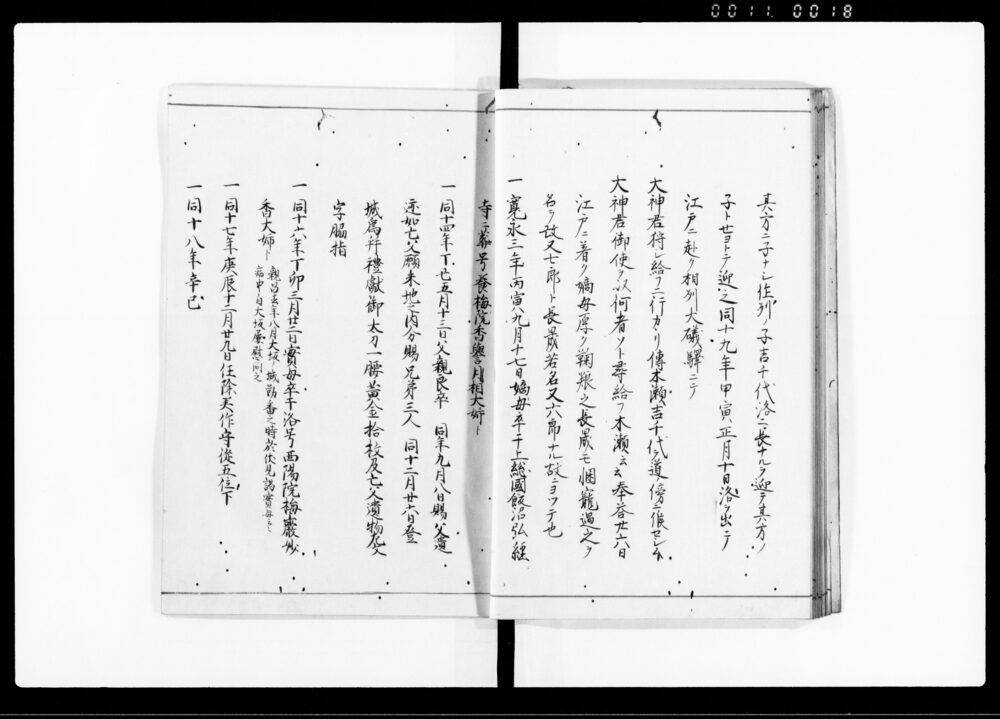 0011 0018
其方ニ子ナシ佐列ノ子吉千代洛ニ長ナルヲ迎テ其方ノ
子ト世ヨトテ迎之同十九年甲寅正月十日洛ヲ出ニテ
江戸ニ赴ク相列大磯驛ニテ
大神君狩シ給フニ行カリ傳木瀬吉千代道傍ニ候セシム
大神君御使ヲ以何者ソト尋給フ木瀬云云奉答廿六日
江戸ニ着ク嫡母厚ク鞠狼之長晟モ悃寵過之ク
名ヲ改又七郎ト長晟若名又六郎ナル故ニヨツテ也
一 寛永三年丙寅八九月十七日嫡母卒于上総國飯沼弘經
寺ニ葬号發梅院香譽月相大姉ト
一同十四年丁丑五月十三日父親良卒 同年九月八日賜父遺
迹如亡父願来地之内分賜兄弟三人 同十二月廿六日登
城為拝禮獻御太刀一腰黄金拾枚及亡父遺物
字脇指
一同十六年丁卯三月廿二日實母卒于洛号西陽院梅巖妙
香大姉ト 親昌去年八月大坂城勤番之時於伏見謁實母
病中自大坂屢慰問之
一同十七年庚辰十二月廿九日任除美作守從五位下
一同十八年辛巳